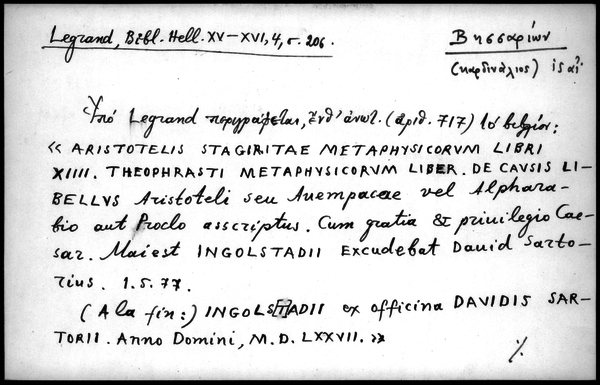 Legrand, Bibl. Hell. XV–XVI, 4, σ. 206.
Βησσαρίων
(καρδινάλιος) ις αἰ.
Ὑπὸ Legrand περιγράφεται, ἔνθ' ἀνωτ. (ἀριθ. 717) τὸ βιβλίον:
« ARISTOTELIS STAGIRITAE METAPHYSICORVM LIBRI
XIIII. THEOPHRASTI METAPHYSICORVM LIBER. DE CAVSIS LI-
BELLVS Aristoteli seu Auempacae vel Alphara-
bio aut Proclo asscriptus. Cum gratia & priuilegio Cae-
sar. Maiest INGOLSTADII Excudebat Dauid Sarto-
rius. 1.5.77.
(A la fin:) INGOLS[T]ADII ex officina DAVIDIS SAR-
TORII. Anno Domini, M.D. LXXVII. »
./.